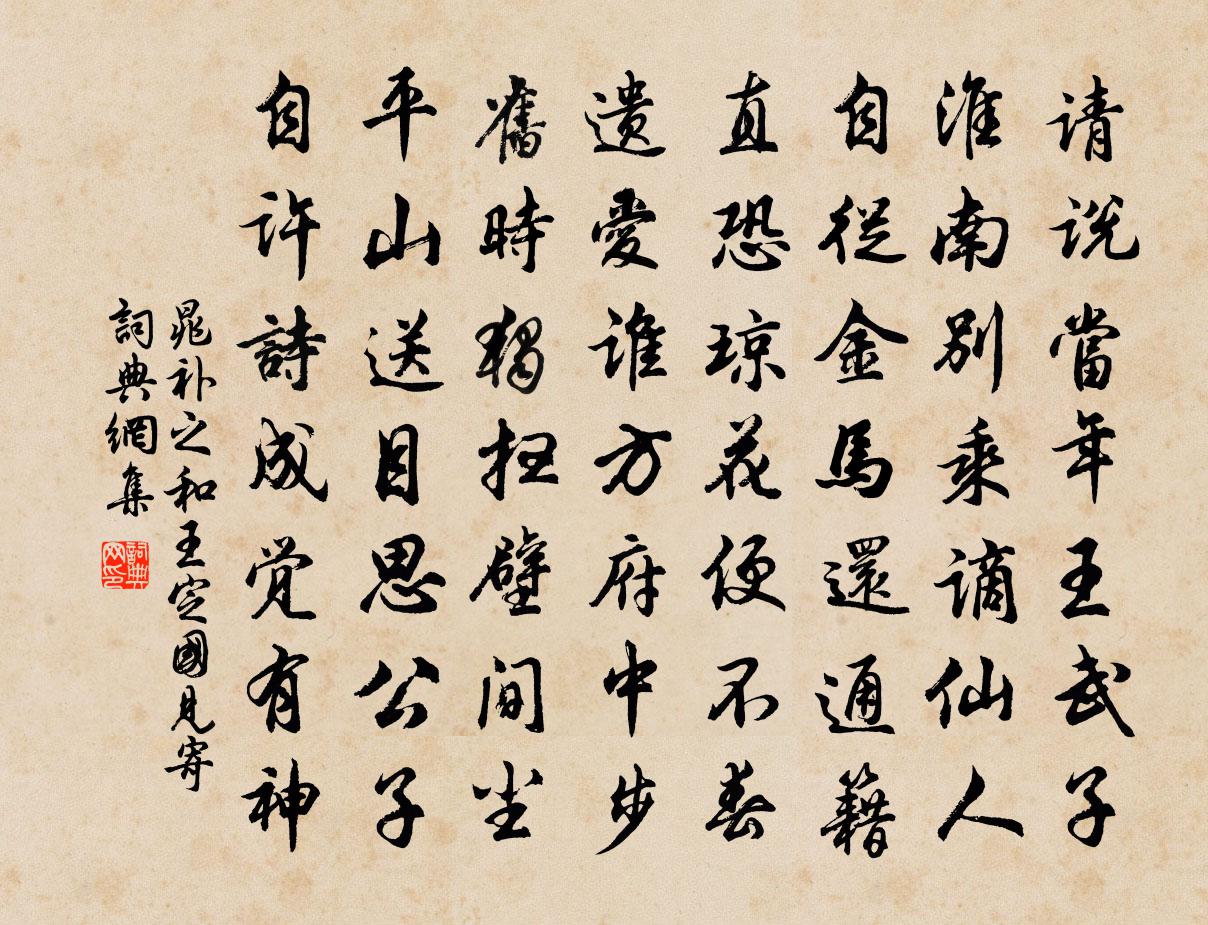 请说當年王武子
淮南别乘谪仙人
自從金馬還通籍
直恐琼花便不春
遗愛谁方府中步
舊時獨扫壁间尘
平山送目思公子
自许詩成觉有神
晁补之和王定國見寄
詞典網集
詞典网印